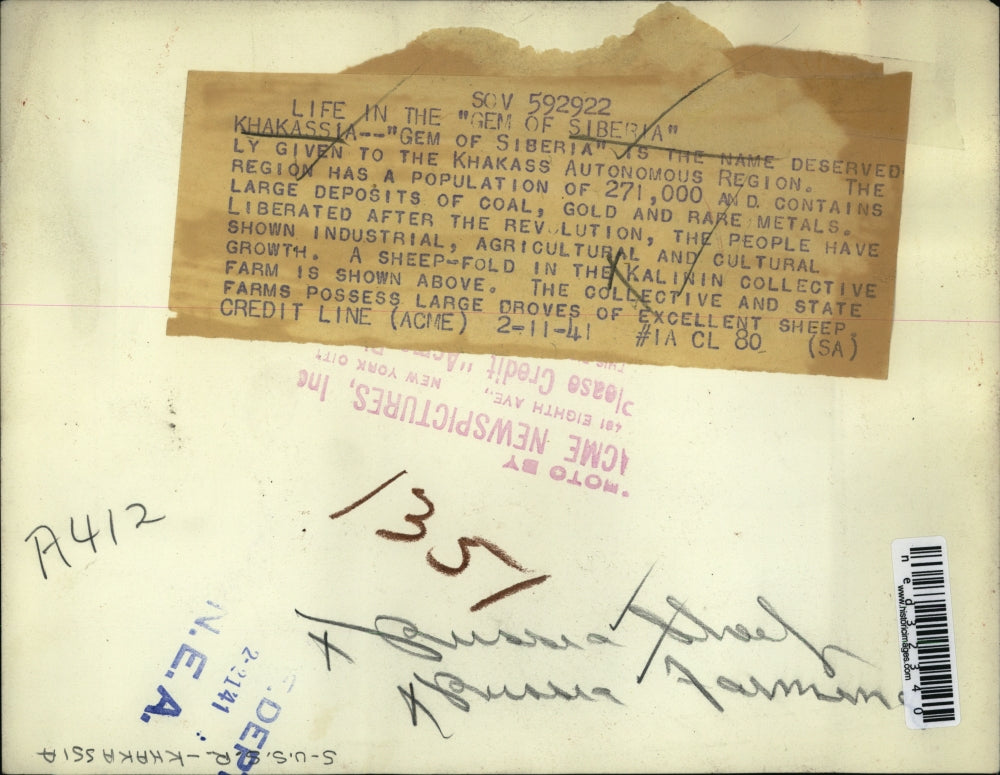 SOV 592922
LIFE IN THE "GEM OF SIBERIA"
KHAKASSIA--"GEM OF SIBERIA" IS THE NAME DESERVED-
LY GIVEN TO THE KHAKASS AUTONOMOUS REGION. THE
REGION HAS A POPULATION OF 271,000 AND CONTAINS
LARGE DEPOSITS OF COAL, GOLD AND RARE METALS.
LIBERATED AFTER THE REV LUTION, THE PEOPLE HAVE
SHOWN INDUSTRIAL, AGRICULTURAL AND CULTURAL
GROWTH. A SHEEP-FOLD IN THE KALININ COLLECTIVE
FARM IS SHOWN ABOVE. THE COLLECTIVE AND STATE
FARMS POSSESS LARGE DROVES OF EXCELLENT SHEEP.
CREDIT LINE (ACME) 2-11-41 #1A CL 80 (SA)
PHOTO BY
ACME NEWSPICTURES, Inc
461 EIGHTH AVE., NEW YORK CITY
Please Credit "Acme
1351
A412
N.E.A.
X Russia
X Russia Farming
S-U.S.S.R-KHAKASSIA
ned32340
www.historicimages.com